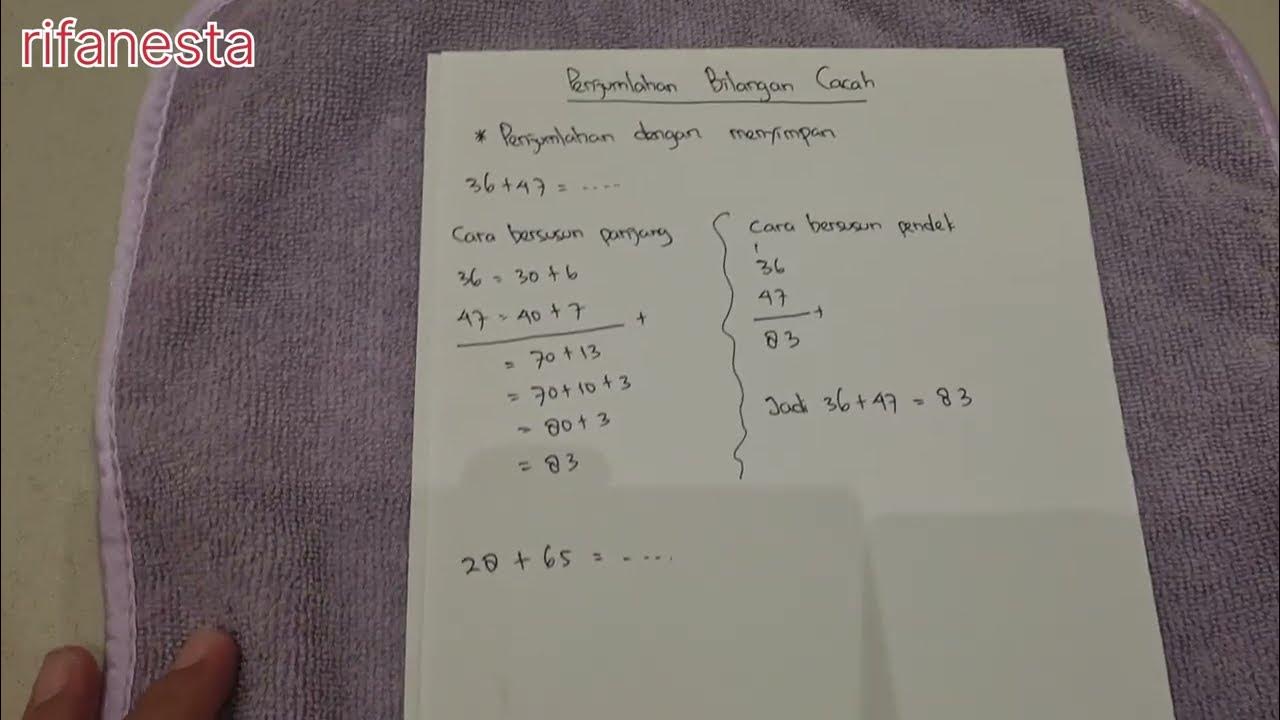 rifanesta
Penjumlahan Bilangan Cacah
* Penjumlahan dengan menyimpan
36 + 47 = ....
Cara bersusun panjang
36 = 30 + 6
47 = 40 + 7 +
= 70 + 13
= 70 + 10 + 3
= 80 + 3
= 83
Cara bersusun pendek
1
36
47 +
83
Jadi 36 + 47 = 83
28 + 65 = .....